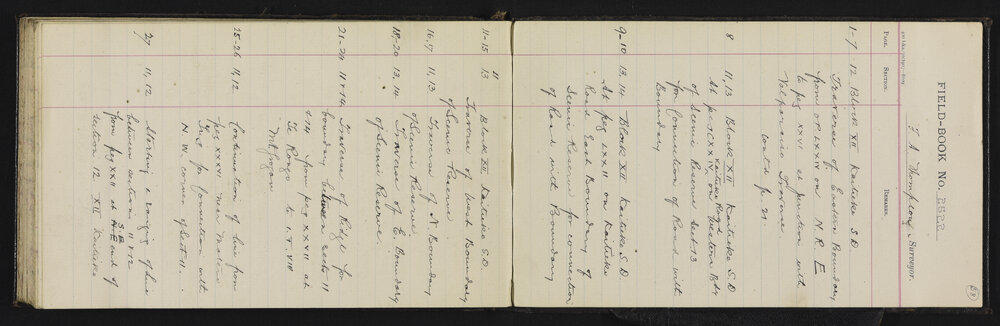 58
FIELD-BOOK No. 2522
F. A. Thompson, Surveyor.
PAGE. SECTION. REMARKS.
1-7 12 Block XII Kaitieke S.D
Traverse of Eastern Boundary
from OP. XXIV on N.R.E
to peg XXVI at junction with
Valparaiso Traverse
contd p. 21
8 11, 13 Block XII Kaitieke S.D
At peg CXXIV, on Kaitieke Road Western Bdy
of Scenic Reserve Sect 13
for connection of Road with
Boundary
9-10 13, 14 Block XII Kaitieke S.D.
At peg LXXII on Kaitieke
Road East Boundary of
Scenic Reserve for connection
of Road with Boundary
11-15 11 13 Block XII Kaitieke S.D.
Traverse of West Boundary
of Scenic Reserve
16, 17 11, 13 Traverse of N. Boundary
of Scenic Reserve
18-20 13, 14 Traverse of E. Boundary
of Scenic Reserve
21-24 11 & 14 Traverse of Ridge for
boundary between sects 11
& 14 from peg XXVI at
Te Rongo to I.T. VIII
25-26 11, 12 Continuation of line from
peg XXXVI near
for connection with
N.W. corner of Sect 11.
27 11, 12 Starting & ranging of line
between sections 11 & 12
from peg XXII at S.E. end of
section 12 XII Kaitieke